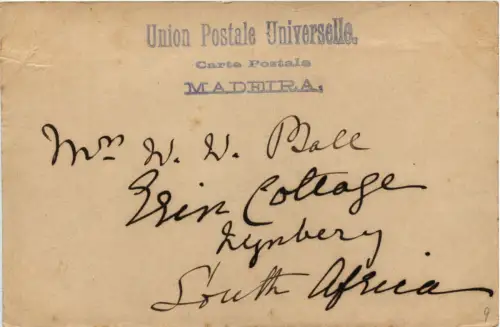 Union Postale Universelle.
Carte Postale
MADEIRA,
Mrs W. W. Ball
Erin Cottage
Wynbery
South Africa
9